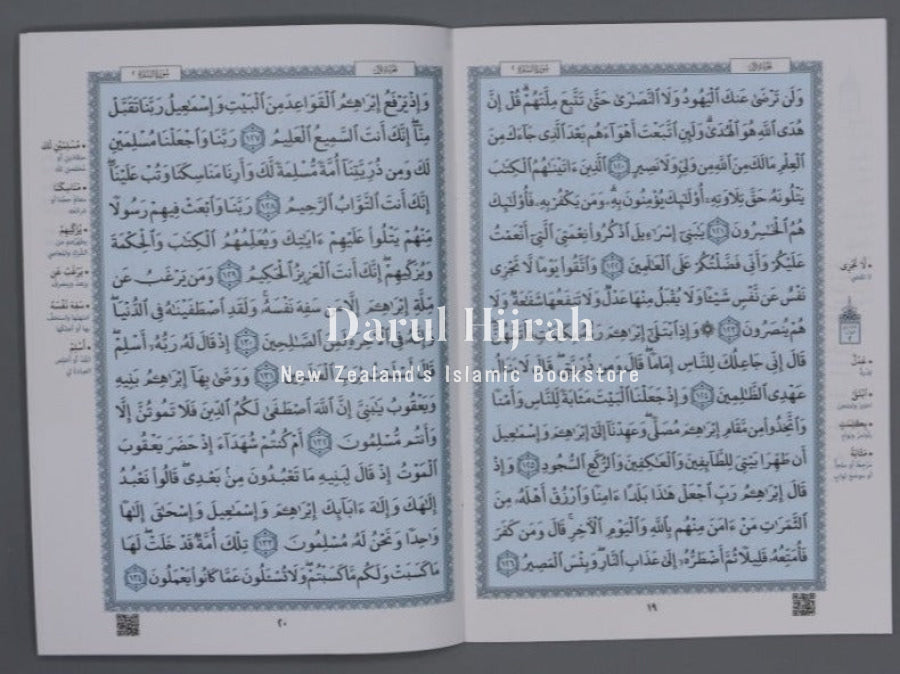 سُورَةُ البَقَرَةِ ٢
وَلَن تَرْضَىٰ عَنكَ ٱلْيَهُودُ وَلَا ٱلنَّصَٰرَىٰ حَتَّىٰ تَتَّبِعَ مِلَّتَهُمْ ۗ قُلْ إِنَّ
هُدَى ٱللَّهِ هُوَ ٱلْهُدَىٰ ۗ وَلَئِنِ ٱتَّبَعْتَ أَهْوَآءَهُم بَعْدَ ٱلَّذِى جَآءَكَ مِنَ
ٱلْعِلْمِ مَا لَكَ مِنَ ٱللَّهِ مِن وَلِىٍّ وَلَا نَصِيرٍ ١٢٠ ٱلَّذِينَ ءَاتَيْنَٰهُمُ ٱلْكِتَٰبَ
يَتْلُونَهُۥ حَقَّ تِلَاوَتِهِۦٓ أُو۟لَٰٓئِكَ يُؤْمِنُونَ بِهِۦ ۗ وَمَن يَكْفُرْ بِهِۦ فَأُو۟لَٰٓئِكَ
هُمُ ٱلْخَٰسِرُونَ ١٢١ يَٰبَنِىٓ إِسْرَٰٓءِيلَ ٱذْكُرُوا۟ نِعْمَتِىَ ٱلَّتِىٓ أَنْعَمْتُ
عَلَيْكُمْ وَأَنِّى فَضَّلْتُكُمْ عَلَى ٱلْعَٰلَمِينَ ١٢٢ وَٱتَّقُوا۟ يَوْمًا لَّا تَجْزِى
نَفْسٌ عَن نَّفْسٍ شَيْـًٔا وَلَا يُقْبَلُ مِنْهَا عَدْلٌ وَلَا تَنفَعُهَا شَفَٰعَةٌ وَلَا
هُمْ يُنصَرُونَ ١٢٣ ۞ وَإِذِ ٱبْتَلَىٰٓ إِبْرَٰهِۦمَ رَبُّهُۥ بِكَلِمَٰتٍ فَأَتَمَّهُنَّ ۖ
قَالَ إِنِّى جَاعِلُكَ لِلنَّاسِ إِمَامًا ۖ قَالَ وَمِن ذُرِّيَّتِى ۖ قَالَ لَا يَنَالُ
عَهْدِى ٱلظَّٰلِمِينَ ١٢٤ وَإِذْ جَعَلْنَا ٱلْبَيْتَ مَثَابَةً لِّلنَّاسِ وَأَمْنًا
وَٱتَّخِذُوا۟ مِن مَّقَامِ إِبْرَٰهِۦمَ مُصَلًّى ۖ وَعَهِدْنَآ إِلَىٰٓ إِبْرَٰهِۦمَ وَإِسْمَٰعِيلَ
أَن طَهِّرَا بَيْتِىَ لِلطَّآئِفِينَ وَٱلْعَٰكِفِينَ وَٱلرُّكَّعِ ٱلسُّجُودِ ١٢٥ وَإِذْ
قَالَ إِبْرَٰهِۦمُ رَبِّ ٱجْعَلْ هَٰذَا بَلَدًا ءَامِنًا وَٱرْزُقْ أَهْلَهُۥ مِنَ
ٱلثَّمَرَٰتِ مَنْ ءَامَنَ مِنْهُم بِٱللَّهِ وَٱلْيَوْمِ ٱلْءَاخِرِ ۖ قَالَ وَمَن كَفَرَ
فَأُمَتِّعُهُۥ قَلِيلًا ثُمَّ أَضْطَرُّهُۥٓ إِلَىٰ عَذَابِ ٱلنَّارِ ۖ وَبِئْسَ ٱلْمَصِيرُ ١٢٦
١٩
لَّا تَجْزِى
عَدْلٌ
مَثَابَةً
سُورَةُ البَقَرَةِ ٢
وَإِذْ يَرْفَعُ إِبْرَٰهِۦمُ ٱلْقَوَاعِدَ مِنَ ٱلْبَيْتِ وَإِسْمَٰعِيلُ رَبَّنَا تَقَبَّلْ
مِنَّآ ۖ إِنَّكَ أَنتَ ٱلسَّمِيعُ ٱلْعَلِيمُ ١٢٧ رَبَّنَا وَٱجْعَلْنَا مُسْلِمَيْنِ
لَكَ وَمِن ذُرِّيَّتِنَآ أُمَّةً مُّسْلِمَةً لَّكَ وَأَرِنَا مَنَاسِكَنَا وَتُبْ عَلَيْنَآ ۖ
إِنَّكَ أَنتَ ٱلتَّوَّابُ ٱلرَّحِيمُ ١٢٨ رَبَّنَا وَٱبْعَثْ فِيهِمْ رَسُولًا
مِّنْهُمْ يَتْلُوا۟ عَلَيْهِمْ ءَايَٰتِكَ وَيُعَلِّمُهُمُ ٱلْكِتَٰبَ وَٱلْحِكْمَةَ
وَيُزَكِّيهِمْ ۚ إِنَّكَ أَنتَ ٱلْعَزِيزُ ٱلْحَكِيمُ ١٢٩ وَمَن يَرْغَبُ عَن
مِّلَّةِ إِبْرَٰهِۦمَ إِلَّا مَن سَفِهَ نَفْسَهُۥ ۚ وَلَقَدِ ٱصْطَفَيْنَٰهُ فِى ٱلدُّنْيَا ۖ
وَإِنَّهُۥ فِى ٱلْءَاخِرَةِ لَمِنَ ٱلصَّٰلِحِينَ ١٣٠ إِذْ قَالَ لَهُۥ رَبُّهُۥٓ أَسْلِمْ ۖ
قَالَ أَسْلَمْتُ لِرَبِّ ٱلْعَٰلَمِينَ ١٣١ وَوَصَّىٰ بِهَآ إِبْرَٰهِۦمُ بَنِيهِ
وَيَعْقُوبُ يَٰبَنِىَّ إِنَّ ٱللَّهَ ٱصْطَفَىٰ لَكُمُ ٱلدِّينَ فَلَا تَمُوتُنَّ إِلَّا
وَأَنتُم مُّسْلِمُونَ ١٣٢ أَمْ كُنتُمْ شُهَدَآءَ إِذْ حَضَرَ يَعْقُوبَ
ٱلْمَوْتُ إِذْ قَالَ لِبَنِيهِ مَا تَعْبُدُونَ مِنۢ بَعْدِى ۖ قَالُوا۟ نَعْبُدُ
إِلَٰهَكَ وَإِلَٰهَ ءَابَآئِكَ إِبْرَٰهِۦمَ وَإِسْمَٰعِيلَ وَإِسْحَٰقَ إِلَٰهًا
وَٰحِدًا وَنَحْنُ لَهُۥ مُسْلِمُونَ ١٣٣ تِلْكَ أُمَّةٌ قَدْ خَلَتْ ۖ لَهَا
مَا كَسَبَتْ وَلَكُم مَّا كَسَبْتُمْ ۖ وَلَا تُسْـَٔلُونَ عَمَّا كَانُوا۟ يَعْمَلُونَ ١٣٤
٢٠
مُسْلِمَيْنِ لَكَ
مَنَاسِكَنَا
يُزَكِّيهِمْ
يَرْغَبُ عَن
سَفِهَ نَفْسَهُ
أَسْلِمْ
Darul Hijrah
New Zealand's Islamic Bookstore